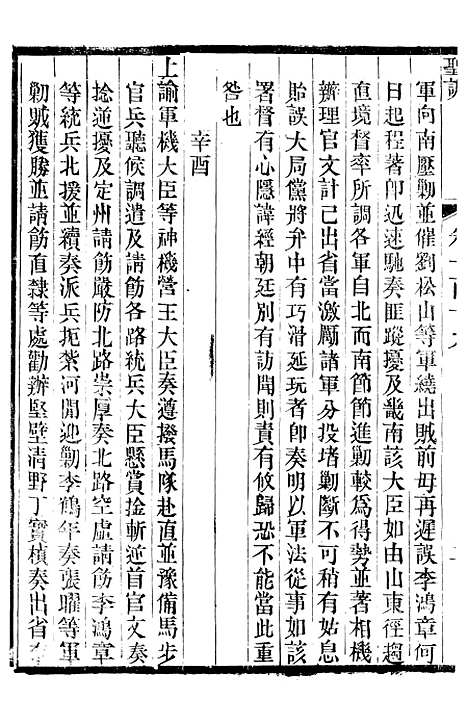 聖訓
軍向南壓勦並催劉松山等軍繞出賊前毋再遲誤李鴻章何
日起程著卽迅速馳奏匪蹤擾及畿南該大臣如由山東徑趨
直境督率所調各軍自北而南節節進勦較爲得勢並著相機
辦理官文計已出省當激勵諸軍分投堵勦斷不可稍有姑息
貽誤大局儻將弁中有巧滑延玩者卽奏明以軍法從事如該
署督有心隱諱經朝廷別有訪聞則責有攸歸恐不能當此重
咎也
辛酉
上諭軍機大臣等神機營王大臣奏遵撥馬隊赴直並豫備馬步
官兵聽候調遣及請飭各路統兵大臣懸賞捡斬逆首官文奏
捻逆擾及定州請飭嚴防北路崇厚奏北路空虛請飭李鴻章
等統兵北援並續奏派兵扼紮河閒迎勦李鶴年奏張曜等軍
勦賊獲勝並請飭直隸等處勸辦堅壁清野丁寶楨奏出省